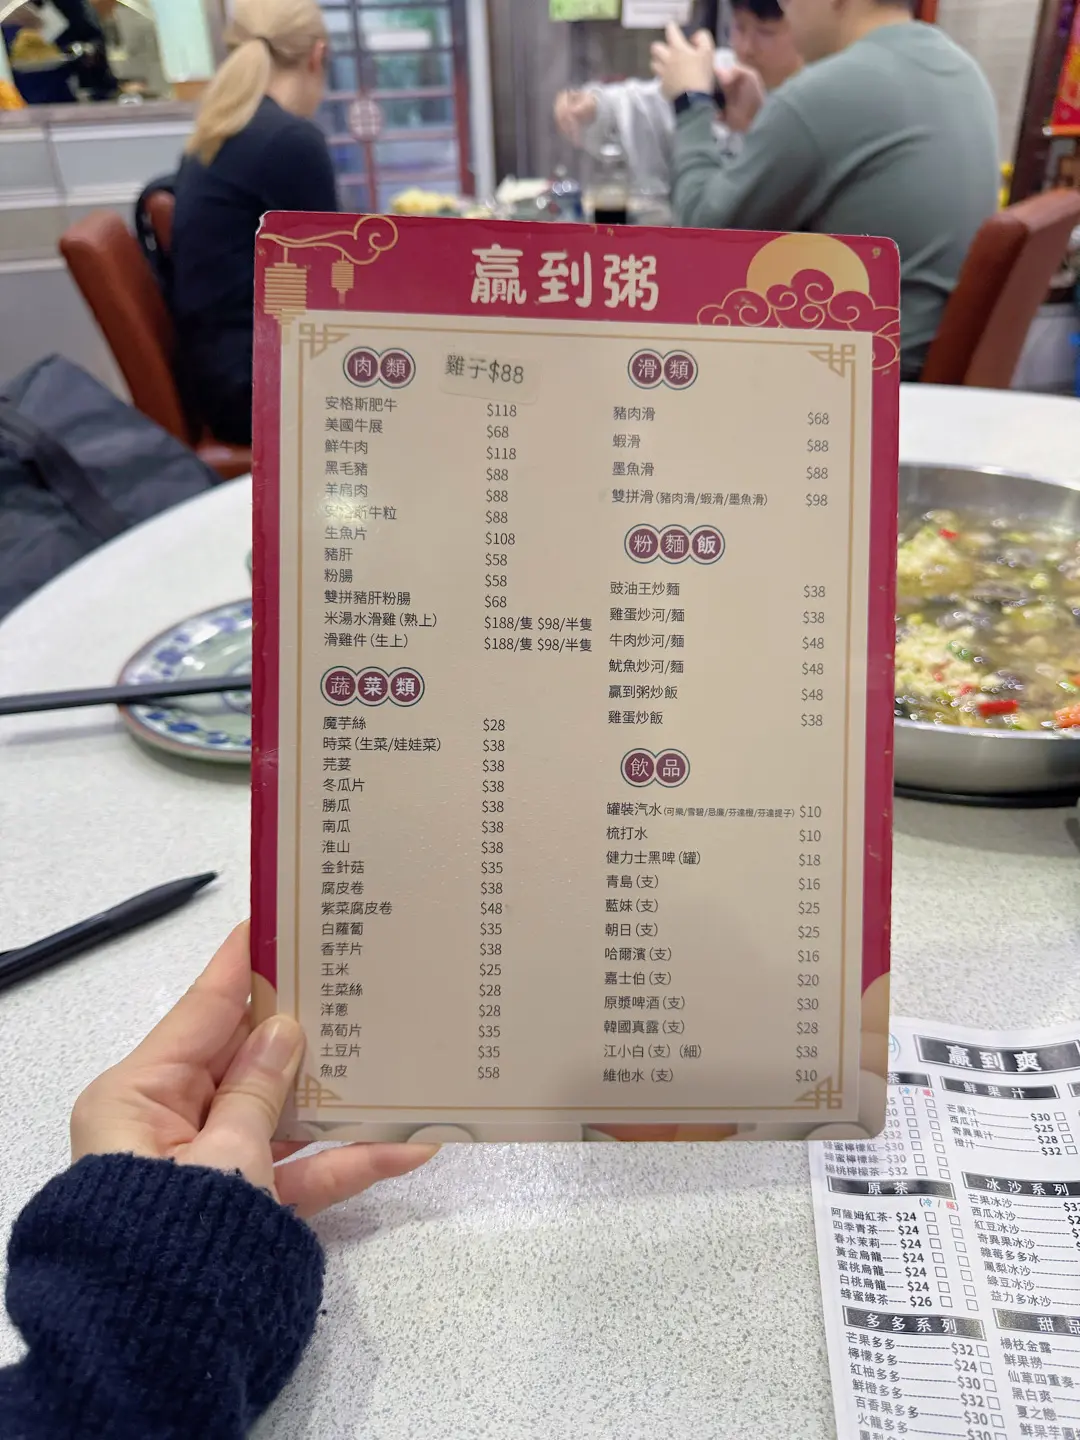 贏到粥
肉類
雞子$88
安格斯肥牛 $118
美國牛展 $68
鮮牛肉 $118
黑毛豬 $88
羊肩肉 $88
安格斯牛粒 $88
生魚片 $108
豬肝 $58
粉腸 $58
雙拼豬肝粉腸 $68
米湯水滑雞(熟上) $188/隻 $98/半隻
滑雞件(生上) $188/隻 $98/半隻
蔬菜類
魔芋絲 $28
時菜(生菜/娃娃菜) $38
芫荽 $38
冬瓜片 $38
勝瓜 $38
南瓜 $38
淮山 $38
金針菇 $35
腐皮卷 $38
紫菜腐皮卷 $48
白蘿蔔 $35
香芋片 $38
玉米 $25
生菜絲 $28
洋蔥 $28
萵筍片 $35
土豆片 $35
魚皮 $58
滑類
豬肉滑 $68
蝦滑 $88
墨魚滑 $88
雙拼滑(豬肉滑/蝦滑/墨魚滑) $98
粉麵飯
豉油王炒麵 $38
雞蛋炒河/麵 $38
牛肉炒河/麵 $48
魷魚炒河/麵 $48
贏到粥炒飯 $48
雞蛋炒飯 $38
飲品
罐裝汽水(可樂/雪碧/忌廉/芬達橙/芬達提子) $10
梳打水 $10
健力士黑啤(罐) $18
青島(支) $16
藍妹(支) $25
朝日(支) $25
哈爾濱(支) $16
嘉士伯(支) $20
原漿啤酒(支) $30
韓國真露(支) $28
江小白(支)(細) $38
維他水(支) $10
贏到爽
茶
(冷/暖)
$32
蜂蜜檸檬紅 $30
蜂蜜檸檬綠 $30
楊桃檸檬茶 $32
原茶
(冷/暖)
阿薩姆紅茶 $24
四季青茶 $24
春水茉莉 $24
黃金烏龍 $24
蜜桃烏龍 $24
白桃烏龍 $24
蜂蜜綠茶 $26
多多系列
芒果多多 $32
檸檬多多 $24
紅柚多多 $30
鮮橙多多 $32
百香果多多 $30
火龍多多 $30
鮮果汁
芒果汁 $30
西瓜汁 $25
奇異果汁 $28
橙汁 $32
冰沙系列
芒果冰沙
西瓜冰沙
紅豆冰沙
奇異果冰沙
雜莓多多冰
鳳梨冰沙
綠豆冰沙
益力多冰沙
甜品
楊枝金露
鮮果撈
仙草四重奏
黑白爽
夏之戀